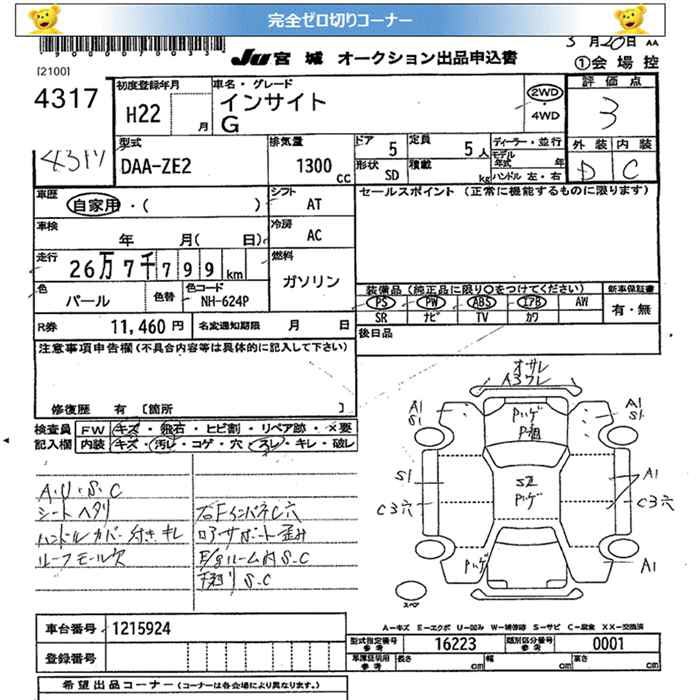 完全ゼロ切りコーナー
JU 宮城 オークション出品申込書
3月20日 AA
[2100]
①会場控
4317
初度登録年月
H22 月
車名・グレード
インサイト
G
2WD
・
4WD
評価点
3
4317
型式
DAA-ZE2
排気量
1300 cc
ドア 5
定員 5人
形状 SD
積載 kg
ディーラー・並行
モデル年式 年
ハンドル 左・右
外装 内装
D C
車歴
自家用・( )
シフト AT
セールスポイント (正常に機能するものに限ります)
車検
年 月( 日)
冷房 AC
走行
26万7千799km
燃料
ガソリン
色
パール
色替
色コード
NH-624P
装備品(純正品に限り○をつけてください)
新車保証書
PS PW ABS エアB AW
SR ナビ TV カワ
有・無
R券 11,460円
名変通知期限 月 日
後日品
注意事項申告欄(不具合内容等は具体的に記入して下さい)
修復歴 有 〔箇所 〕
検査員
記入欄
FW キズ・飛石・ヒビ割・リペア跡・×要
内装 キズ・汚レ・コゲ・穴・スレ・キレ・破レ
A・U・S・C
シートヘタリ
ハンドルカバー付き キレ
ルーフモール欠
右FインパネC穴
コアサポート歪み
E/gルーム内 S・C
下廻り S・C
オサレ
A3ワレ
A1
S1
Pハゲ
A1
S1
S1
C3穴
Pハゲ
A1
C3穴
Pハゲ
A1
スペア
A-キズ E-エクボ U-凹み W-補修跡 S-サビ C-腐食 XX-交換済
車台番号 1215924
型式指定番号 参考 16223
類別区分番号 参考 0001
登録番号
車庫証明用 参考
長さ cm 幅 cm 高さ cm
希望出品コーナー(コーナーは各会場により異なります。)